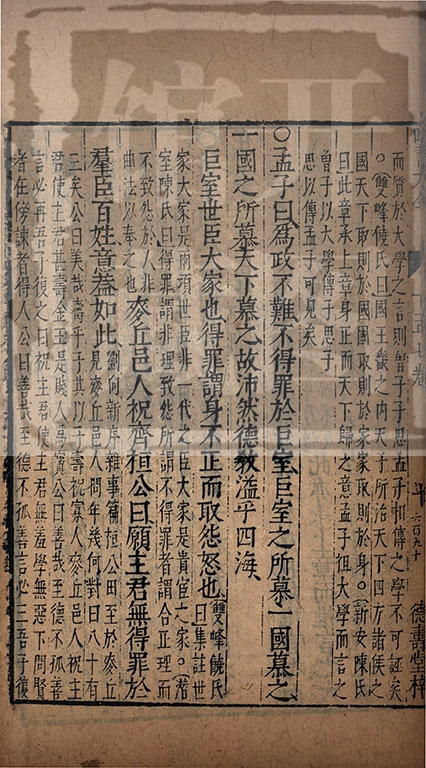 而質於大學之言則曾子子思孟子相傳之學不可誣矣
○雙峰饒氏曰國王畿之内天子所治天下四方諸侯之
國天下取則於國國取則於家家取則於身○新安陳氏
曰此章承上章身正而天下歸之意孟子祖大學而言之
曾子以大學傳子思子
思以傳孟子可見矣
○孟子曰爲政不難不得罪於巨室巨室之所慕一國慕之
一國之所慕天下慕之故沛然德教溢乎四海
巨室世臣大家也得罪謂身不正而取怨怒也
雙峰饒氏
曰集註世
家大家是兩項世臣非一代之臣大家是貴宦之家○
室陳氏曰得罪謂非理致怨所謂不得罪者謂合正理而
不致怨於人非
曲法以奉之也
麥丘邑人祝齊桓公曰願主君無得罪於
羣臣百姓意蓋如此
劉向新序雜事篇桓公田至於麥丘
見麥丘邑人問年幾何對曰八十有
三矣公曰美哉壽乎子其以子壽祝寡人麥丘邑人祝主
君使主君甚壽金玉是賤人爲寳公曰善哉至德不孤善
言必再吾子復之曰祝主君使主君無羞學無惡下問賢
者在傍諫者得人公曰善哉至德不孤善言必三吾子復
德壽堂梓